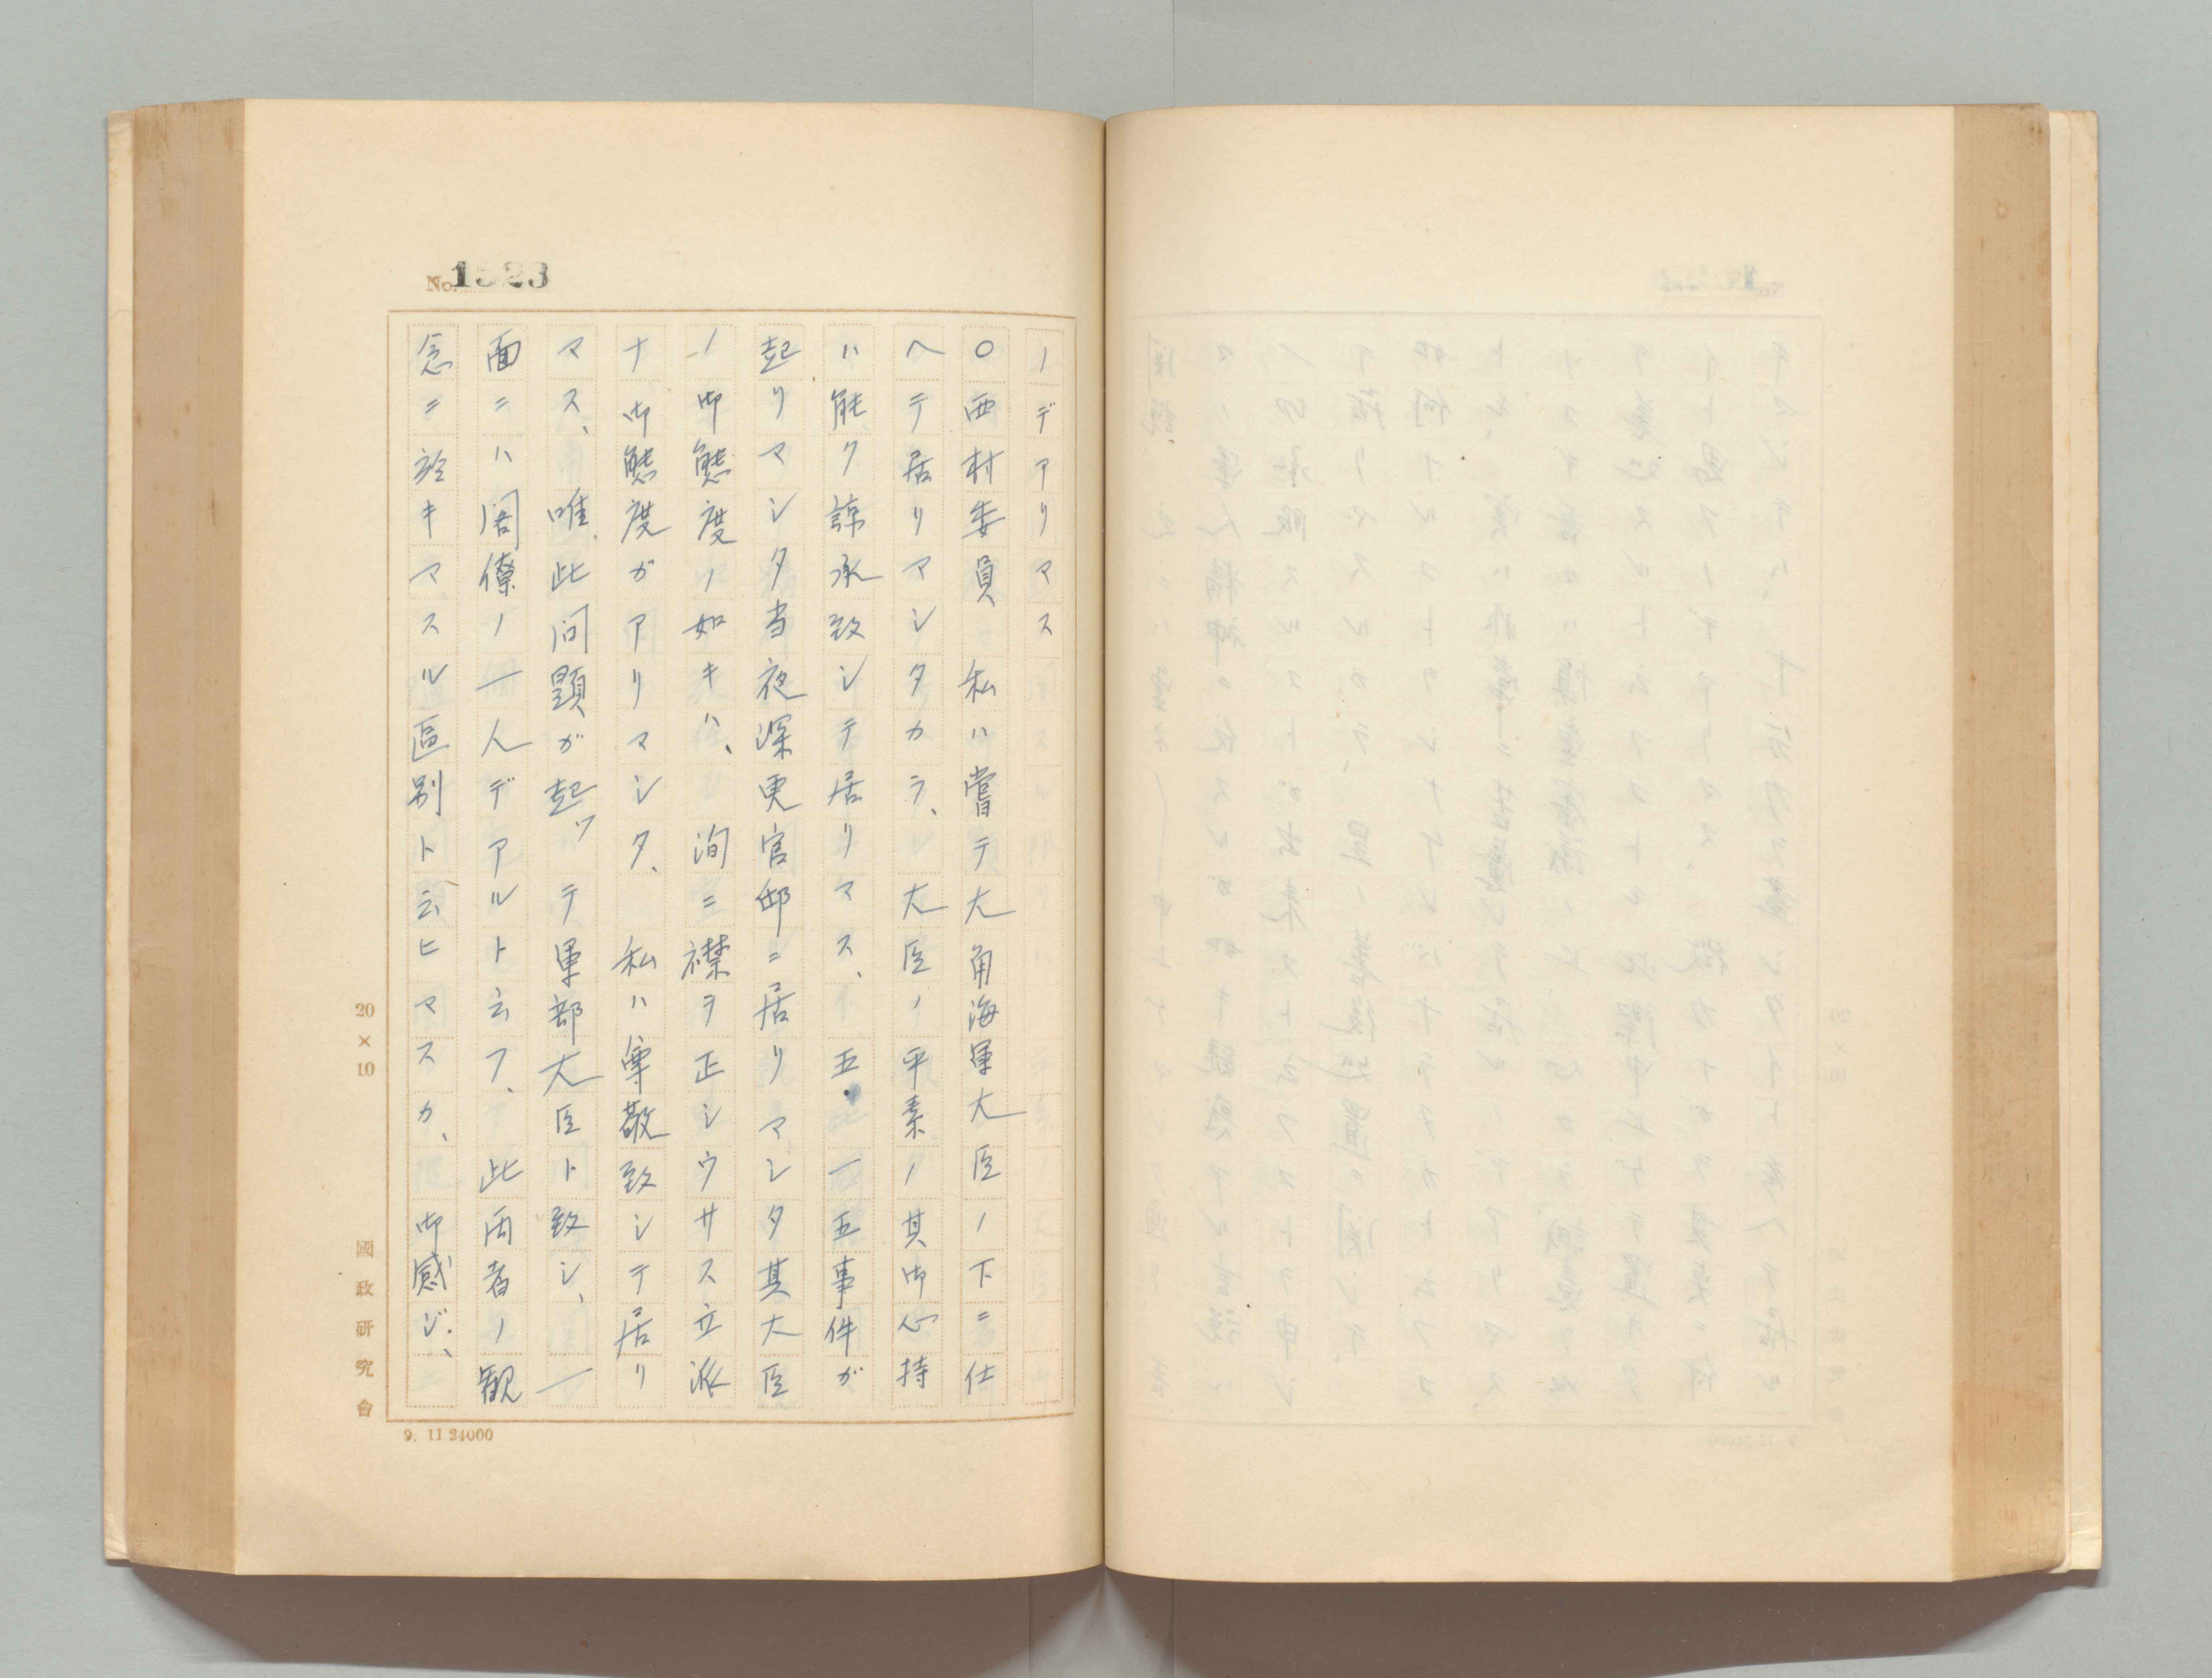 No. 1523
ノデアリマス
○西村委員、私ハ嘗テ大角海軍大臣ノ下ニ仕
ヘテ居リマシタカラ、大臣ノ平素ノ其御心持
ハ能ク諒承致シテ居リマス、五・一五事件ガ
起リマシタ当夜深更官邸ニ居リマシタ其大臣
ノ御態度ノ如キハ、洵ニ襟ヲ正シウサス立派
ナ御態度ガアリマシタ、私ハ尊敬致シテ居リ
マス、唯此問題ガ起ツテ軍部大臣ト致シ、一
面ニハ閣僚ノ一人デアルト云フ、此両者ノ観
念ニ於キマスル區別ト云ヒマスカ、御感ジ、
20×10
國政研究會
9. 11 24000